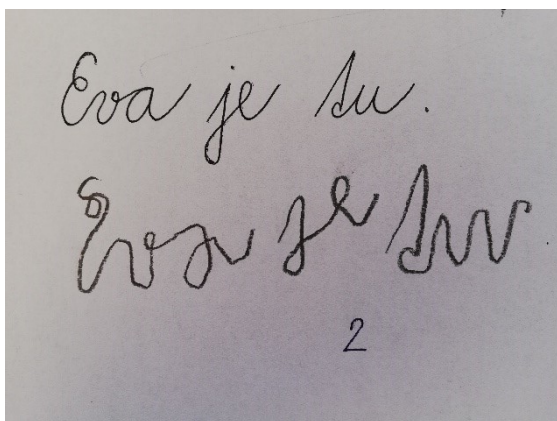 Eva je tu.
Eva je tu
2